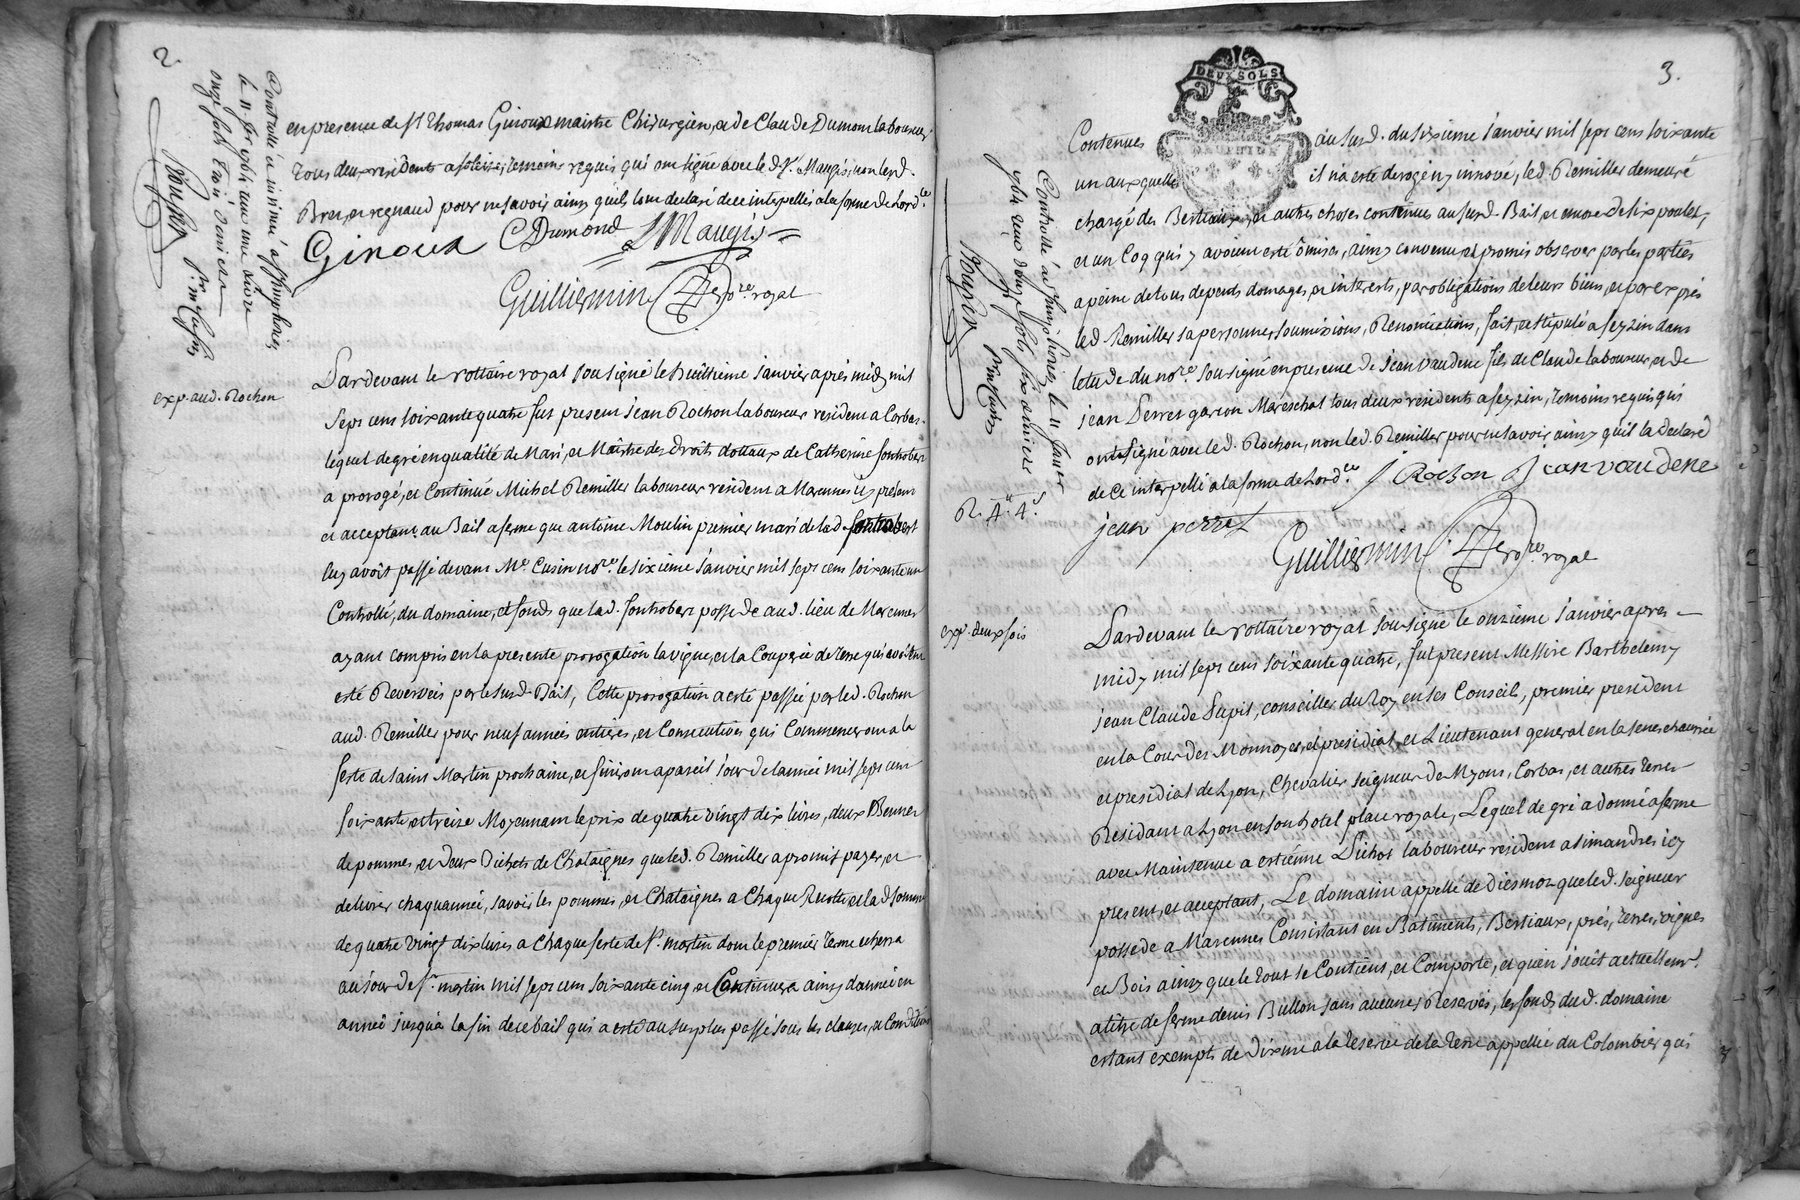 2
Controllé et insinué a st simphorien
le 11 jer 1764 reçu une livre
onze sols trois deniers
en presence de sr Thomas Giroux maistre Chirurgien, et de Claude Dumont laboureur,
tous deux residents a temoins requis qui ont signé avec led. sr. Maugis, non lesd.
Bret, et regnaud pour ne scavoir ainsy qu'ils l'ont declaré de ce interpellés a la forme de l'ord.ce
Giroux CDumond Maugis
Guilliermin nore. royal
exp. aud. Rochon
Pardevant le nottaire royal sousigné le huittieme janvier après midy mil
sept cens soixante quatre fut present jean Rochon laboureur resident a Corbas
lequel de gré en qualité de Mari, et Maitre des droits dottaux de Catherine fontrobert
a prorogé, et Continué Michel Remiller laboureur resident a Marennes icy présent
et acceptant au Bail a ferme que antoine Moulin premier mari de lad. fontrobert
luy avoit passé devant Me. Cusin nore. le sixieme janvier mil sept cens soixante un
Controllé, du domaine, et fonds que lad. fontrobert possede aud. lieu de Marennes
ayant compris en la presente prorogation la vigne, et la Coupée de terre qui avoient
esté Reservées par le susd. Bail, Cette prorogation a esté passée par led. Rochon
aud. Remiller pour neuf années entieres, et Consecutives qui Commenceront a la
feste de saint Martin prochaine, et finiront a pareil jour de l'année mil sept cens
soixante et treize Moyennant le prix de quatre vingt dix livres, deux Bennes
de pommes, et deux Bichets de Chataignes que led. Remiller a promis payer, et
delivrer chaque année, savoir les pommes, et Chataignes a Chaque Recolte et lad. somme
de quatre vingt dix livres a Chaque feste de st. martin dont le premier terme echerra
au jour de st. martin mil sept cens soixante cinq et Continuera ainsy d'année en
année jusqu'a la fin de ce bail qui a esté au surplus passé sous les clauses, et Conditions
3.
DEUX SOLS
DAUPHINE
Controllé a st simphorien le 11 janver
1764 reçu douze sols six deniers
R. 4. 4s.
Contenues au susd. du sixieme janvier mil sept cens soixante
un auxquelles il n'a esté derogé ny innové, led. Remiller demeuré
chargé des Bestiaux, et autres choses contenues au susd. Bail, et encore de six poules,
et un Coq qui y avoient esté ômises, ainsy convenu et promis observer par les parties
a peine de tous depens domages, et interests, par obligations de leurs biens, et par exprés
led. Remiller sa personne, soumissions, Renonciations, fait, et stipulé a feyzin dans
letude du nore. sousigné en presence de jean vaudene fils de Claude laboureur, et de
jean Perret garçon Mareschal tous deux residents a feyzin, temoins requis qui
ont signé avec led. Rochon, non led. Remiller pour ne savoir ainsy qu'il l'a declaré
de ce interpellé a la forme de l'ord.ce j Rochon jean vaudene
jean perret
Guilliermin nore. royal
exp. deux fois
Pardevant le nottaire royal sousigné le onzieme janvier apres
midy mil sept cens soixante quatre, fut present Messire Barthelemy
jean Claude Pupil, conseiller du Roy en ses Conseils, premier president
en la Cour des Monnoyes, et presidial, et Lieutenant general en la seneschaussée
et presidial de Lyon, Chevalier seigneur de Myons, Corbas, et autres terres
Residant a Lyon en son hotel place royale, Lequel de gré a donné a ferme
avec Maintenue a estienne Pichot laboureur resident a simandres icy
present, et acceptant, Le domaine appellé de Diesmoz que led. seigneur
possede a Marennes Consistant en Batiments, Bestiaux, prés, terres, vignes
et Bois ainsy que le tout se Contient, et Comporte, et qu'en jouit actuellemt.
a titre de ferme denis Bullon sans aucunes Reserves, les fonds dud. domaine
estant exempts de dixme a la reserve de la terre appellée du Colombier qui